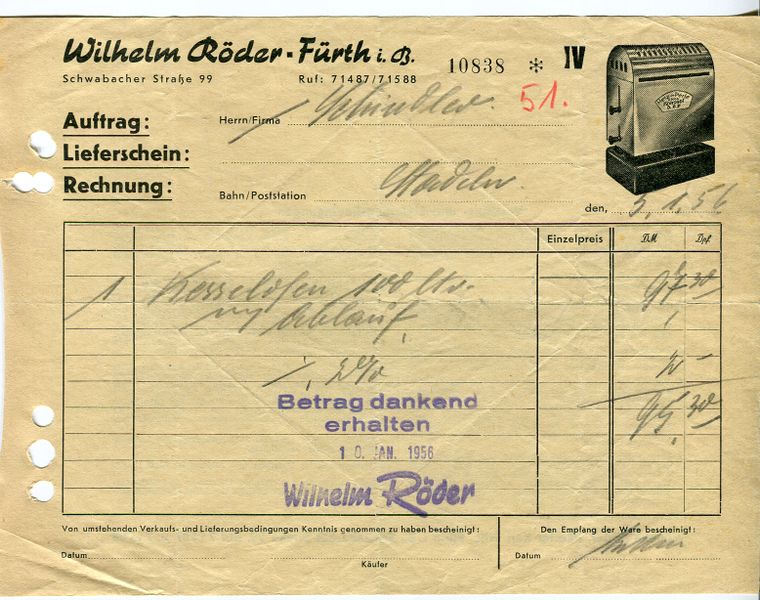 Wilhelm Röder - Fürth i. B.
10838 * IV
Schwabacher Straße 99 Ruf: 71487/71588
51.
Auftrag:
Herrn/Firma Schindler.
Lieferschein:
Rechnung:
Bahn/Poststation Stadeln.
den, 5.1.56
Einzelpreis DM Dpf.
1 Kesselofen 100 Ltr. 97 30
m/ Ablauf.
·/. 2% 2 -
Betrag dankend
95 30
erhalten
10. JAN. 1956
Wilhelm Röder
Von umstehenden Verkaufs- und Lieferungsbedingungen Kenntnis genommen zu haben bescheinigt:
Den Empfang der Ware bescheinigt:
Datum
Käufer
Datum